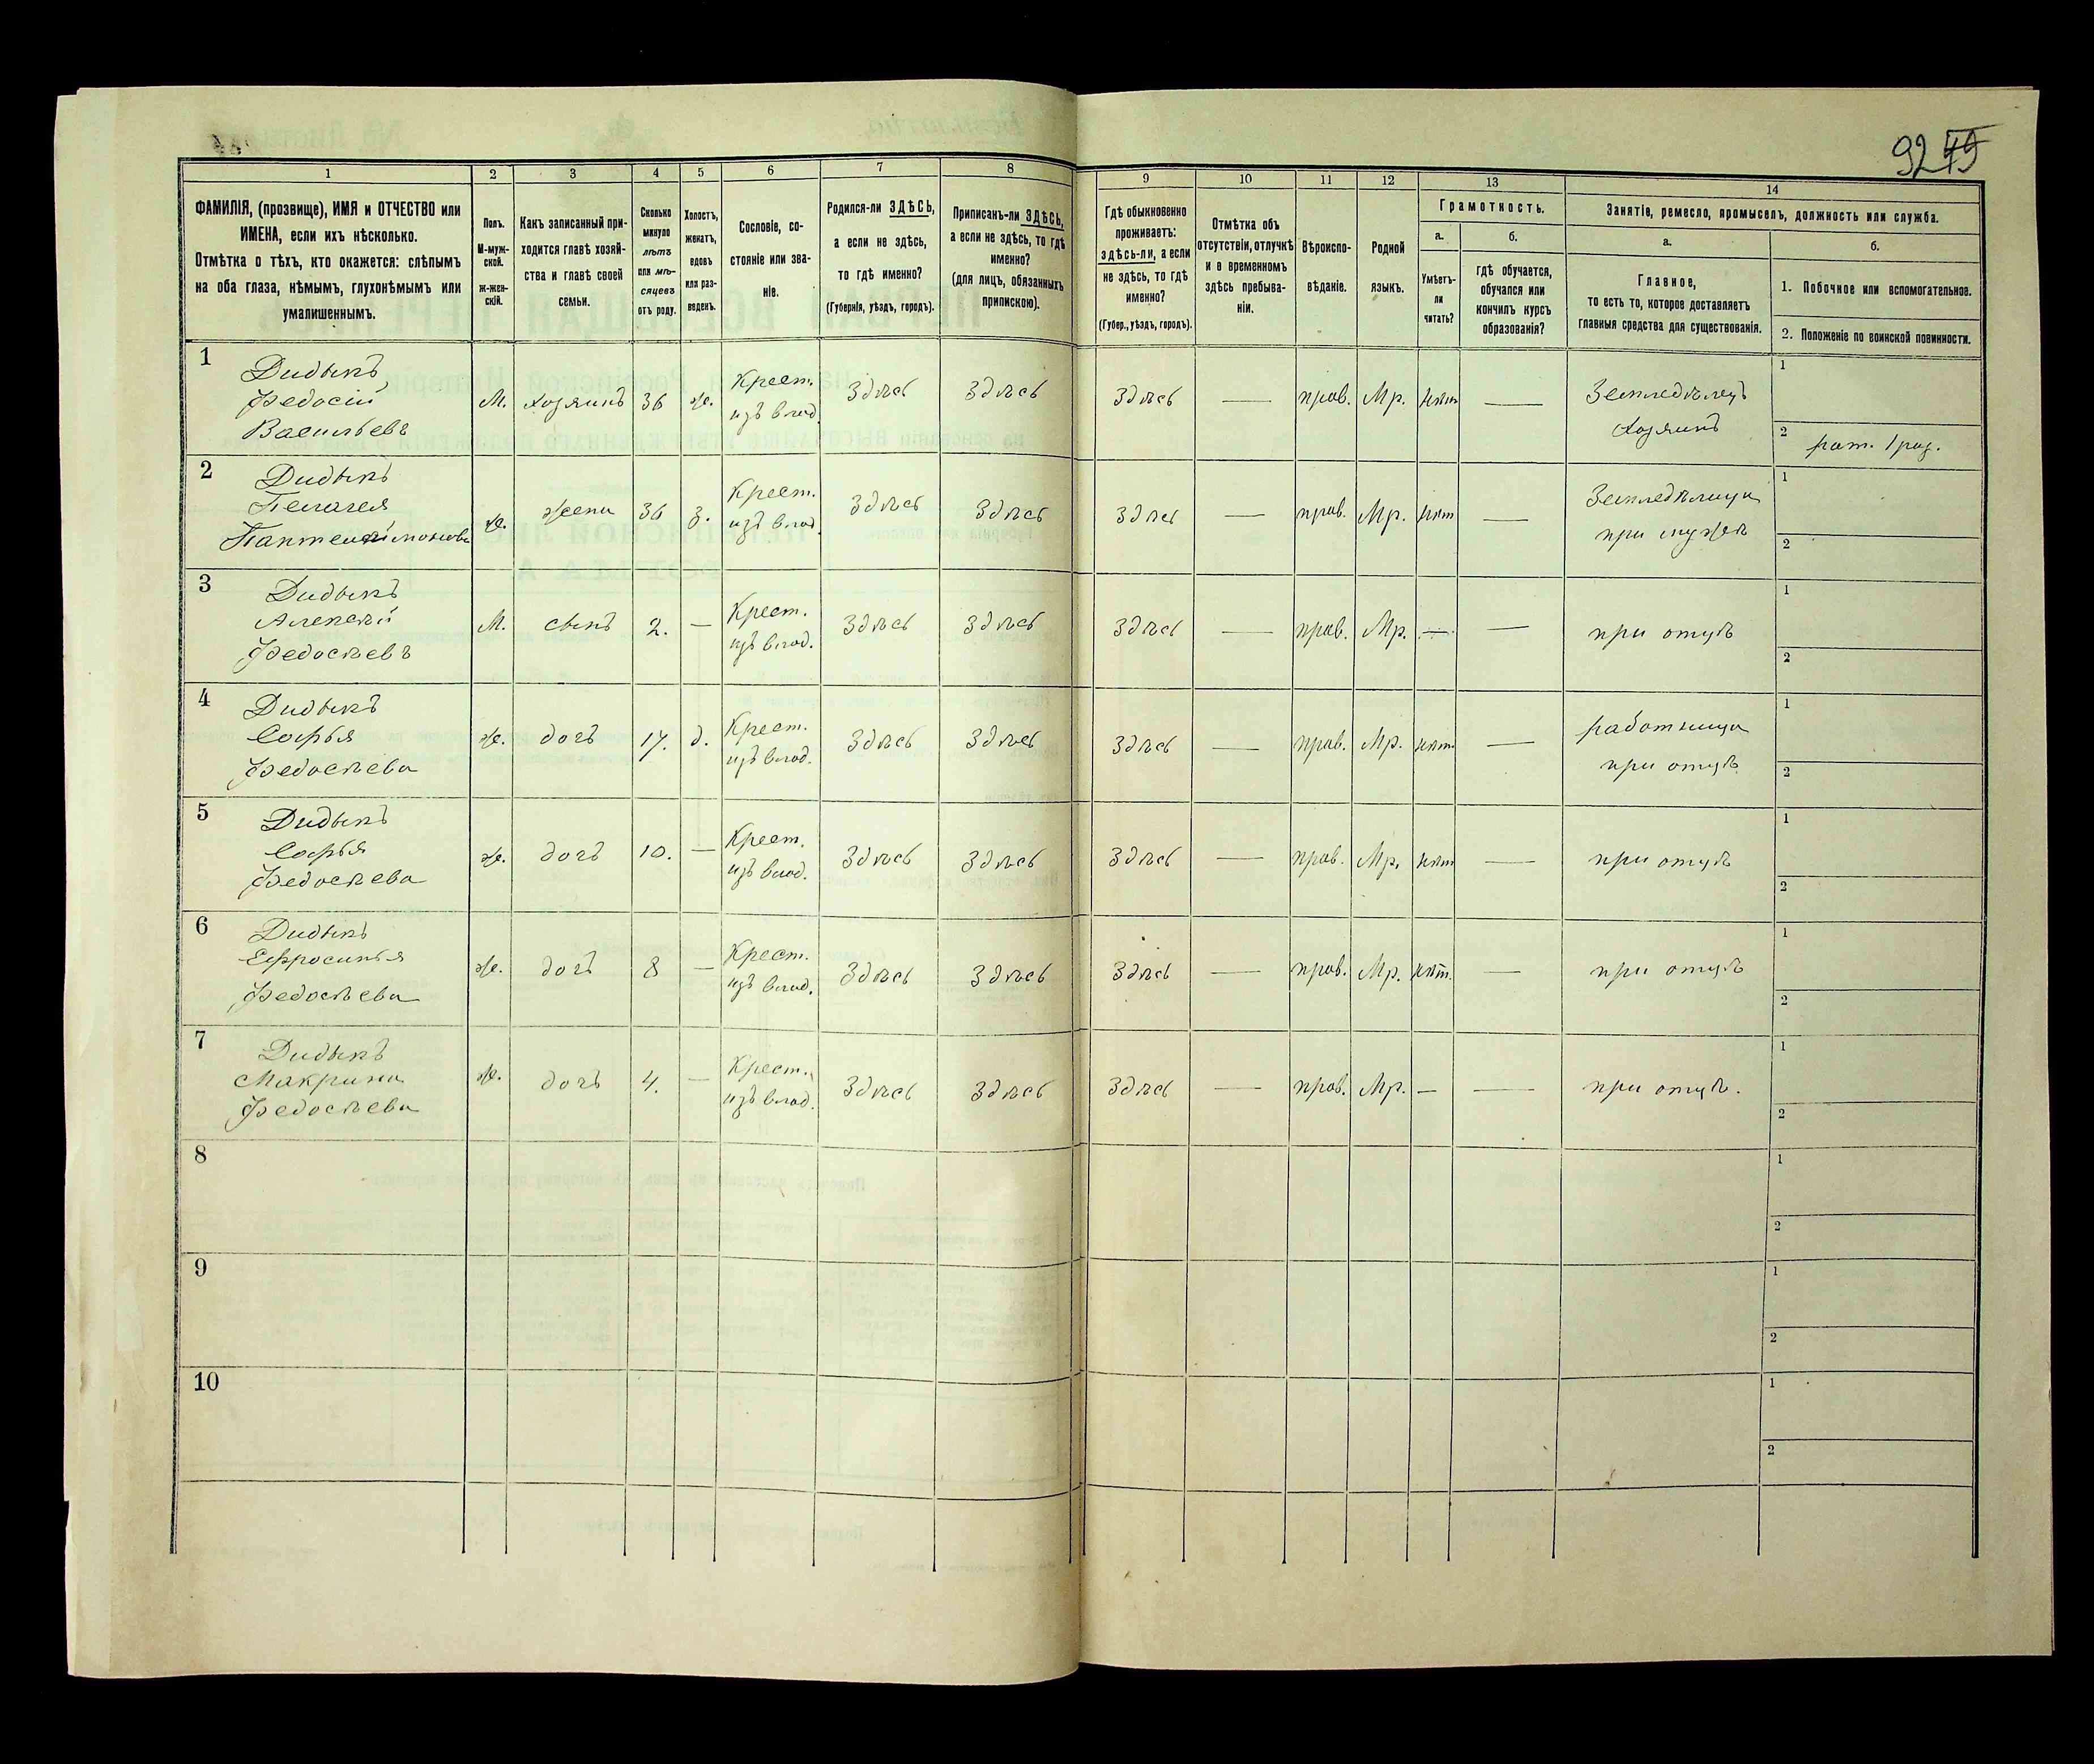 92 49
1 2 3 4 5 6 7 8 9 10 11 12 13 14
ФАМИЛІЯ, (прозвище), ИМЯ и ОТЧЕСТВО или
ИМЕНА, если ихъ нѣсколько.
Отмѣтка о тѣхъ, кто окажется: слѣпымъ
на оба глаза, нѣмымъ, глухонѣмымъ или
умалишеннымъ.
Полъ.
М-муж-
ской.
ж-жен-
скій.
Какъ записанный при-
ходится главѣ хозяй-
ства и главѣ своей
семьи.
Сколько
минуло
лѣтъ
или мѣ-
сяцевъ
отъ роду.
Холостъ,
женатъ,
вдовъ
или раз-
веденъ.
Сословіе, со-
стояніе или зва-
ніе.
Родился-ли ЗДѢСЬ,
а если не здѣсь,
то гдѣ именно?
(Губернія, уѣздъ, городъ).
Приписанъ-ли ЗДѢСЬ,
а если не здѣсь, то гдѣ
именно?
(для лицъ, обязанныхъ
припискою).
Гдѣ обыкновенно
проживаетъ:
здѣсь-ли, а если
не здѣсь, то гдѣ
именно?
(Губер., уѣздъ, городъ).
Отмѣтка объ
отсутствіи, отлучкѣ
и о временномъ
здѣсь пребыва-
ніи.
Вѣроиспо-
вѣданіе.
Родной
языкъ.
Грамотность.
а.
Умѣетъ-
ли
читать?
б.
гдѣ обучается,
обучался или
кончилъ курсъ
образованія?
Занятіе, ремесло, промыселъ, должность или служба.
а.
Главное,
то есть то, которое доставляетъ
главныя средства для существованія.
б.
1. Побочное или вспомогательное.
2. Положеніе по воинской повинности.
1
Дидыкъ
Федосій
Васильевъ
М. хозяинъ 36 ж. Крест.
изъ влад. здѣсь здѣсь здѣсь — прав. Мр. нѣтъ — Земледѣлецъ
хозяинъ
1
2 рат. 1 раз.
2
Дидыкъ
Пелагея
Пантелеймонова
ж. жена 36 з. Крест.
изъ влад. здѣсь здѣсь здѣсь — прав. Мр. нѣтъ — Земледѣлица
при мужѣ
1
2
3
Дидыкъ
Алексѣй
Федосѣевъ
М. сынъ 2. — Крест.
изъ влад. здѣсь здѣсь здѣсь — прав. Мр. — — при отцѣ
1
2
4
Дидыкъ
Софья
Федосѣева
ж. дочь 17. д. Крест.
изъ влад. здѣсь здѣсь здѣсь — прав. Мр. нѣтъ — работница
при отцѣ
1
2
5
Дидыкъ
Софья
Федосѣева
ж. дочь 10. — Крест.
изъ влад. здѣсь здѣсь здѣсь — прав. Мр. нѣтъ — при отцѣ
1
2
6
Дидыкъ
Ефросинья
Федосѣева
ж. дочь 8 — Крест.
изъ влад. здѣсь здѣсь здѣсь — прав. Мр. нѣт. — при отцѣ
1
2
7
Дидыкъ
Макрина
Федосѣева
ж. дочь 4. — Крест.
изъ влад. здѣсь здѣсь здѣсь — прав. Мр. — — при отцѣ.
1
2
8
1
2
9
1
2
10
1
2